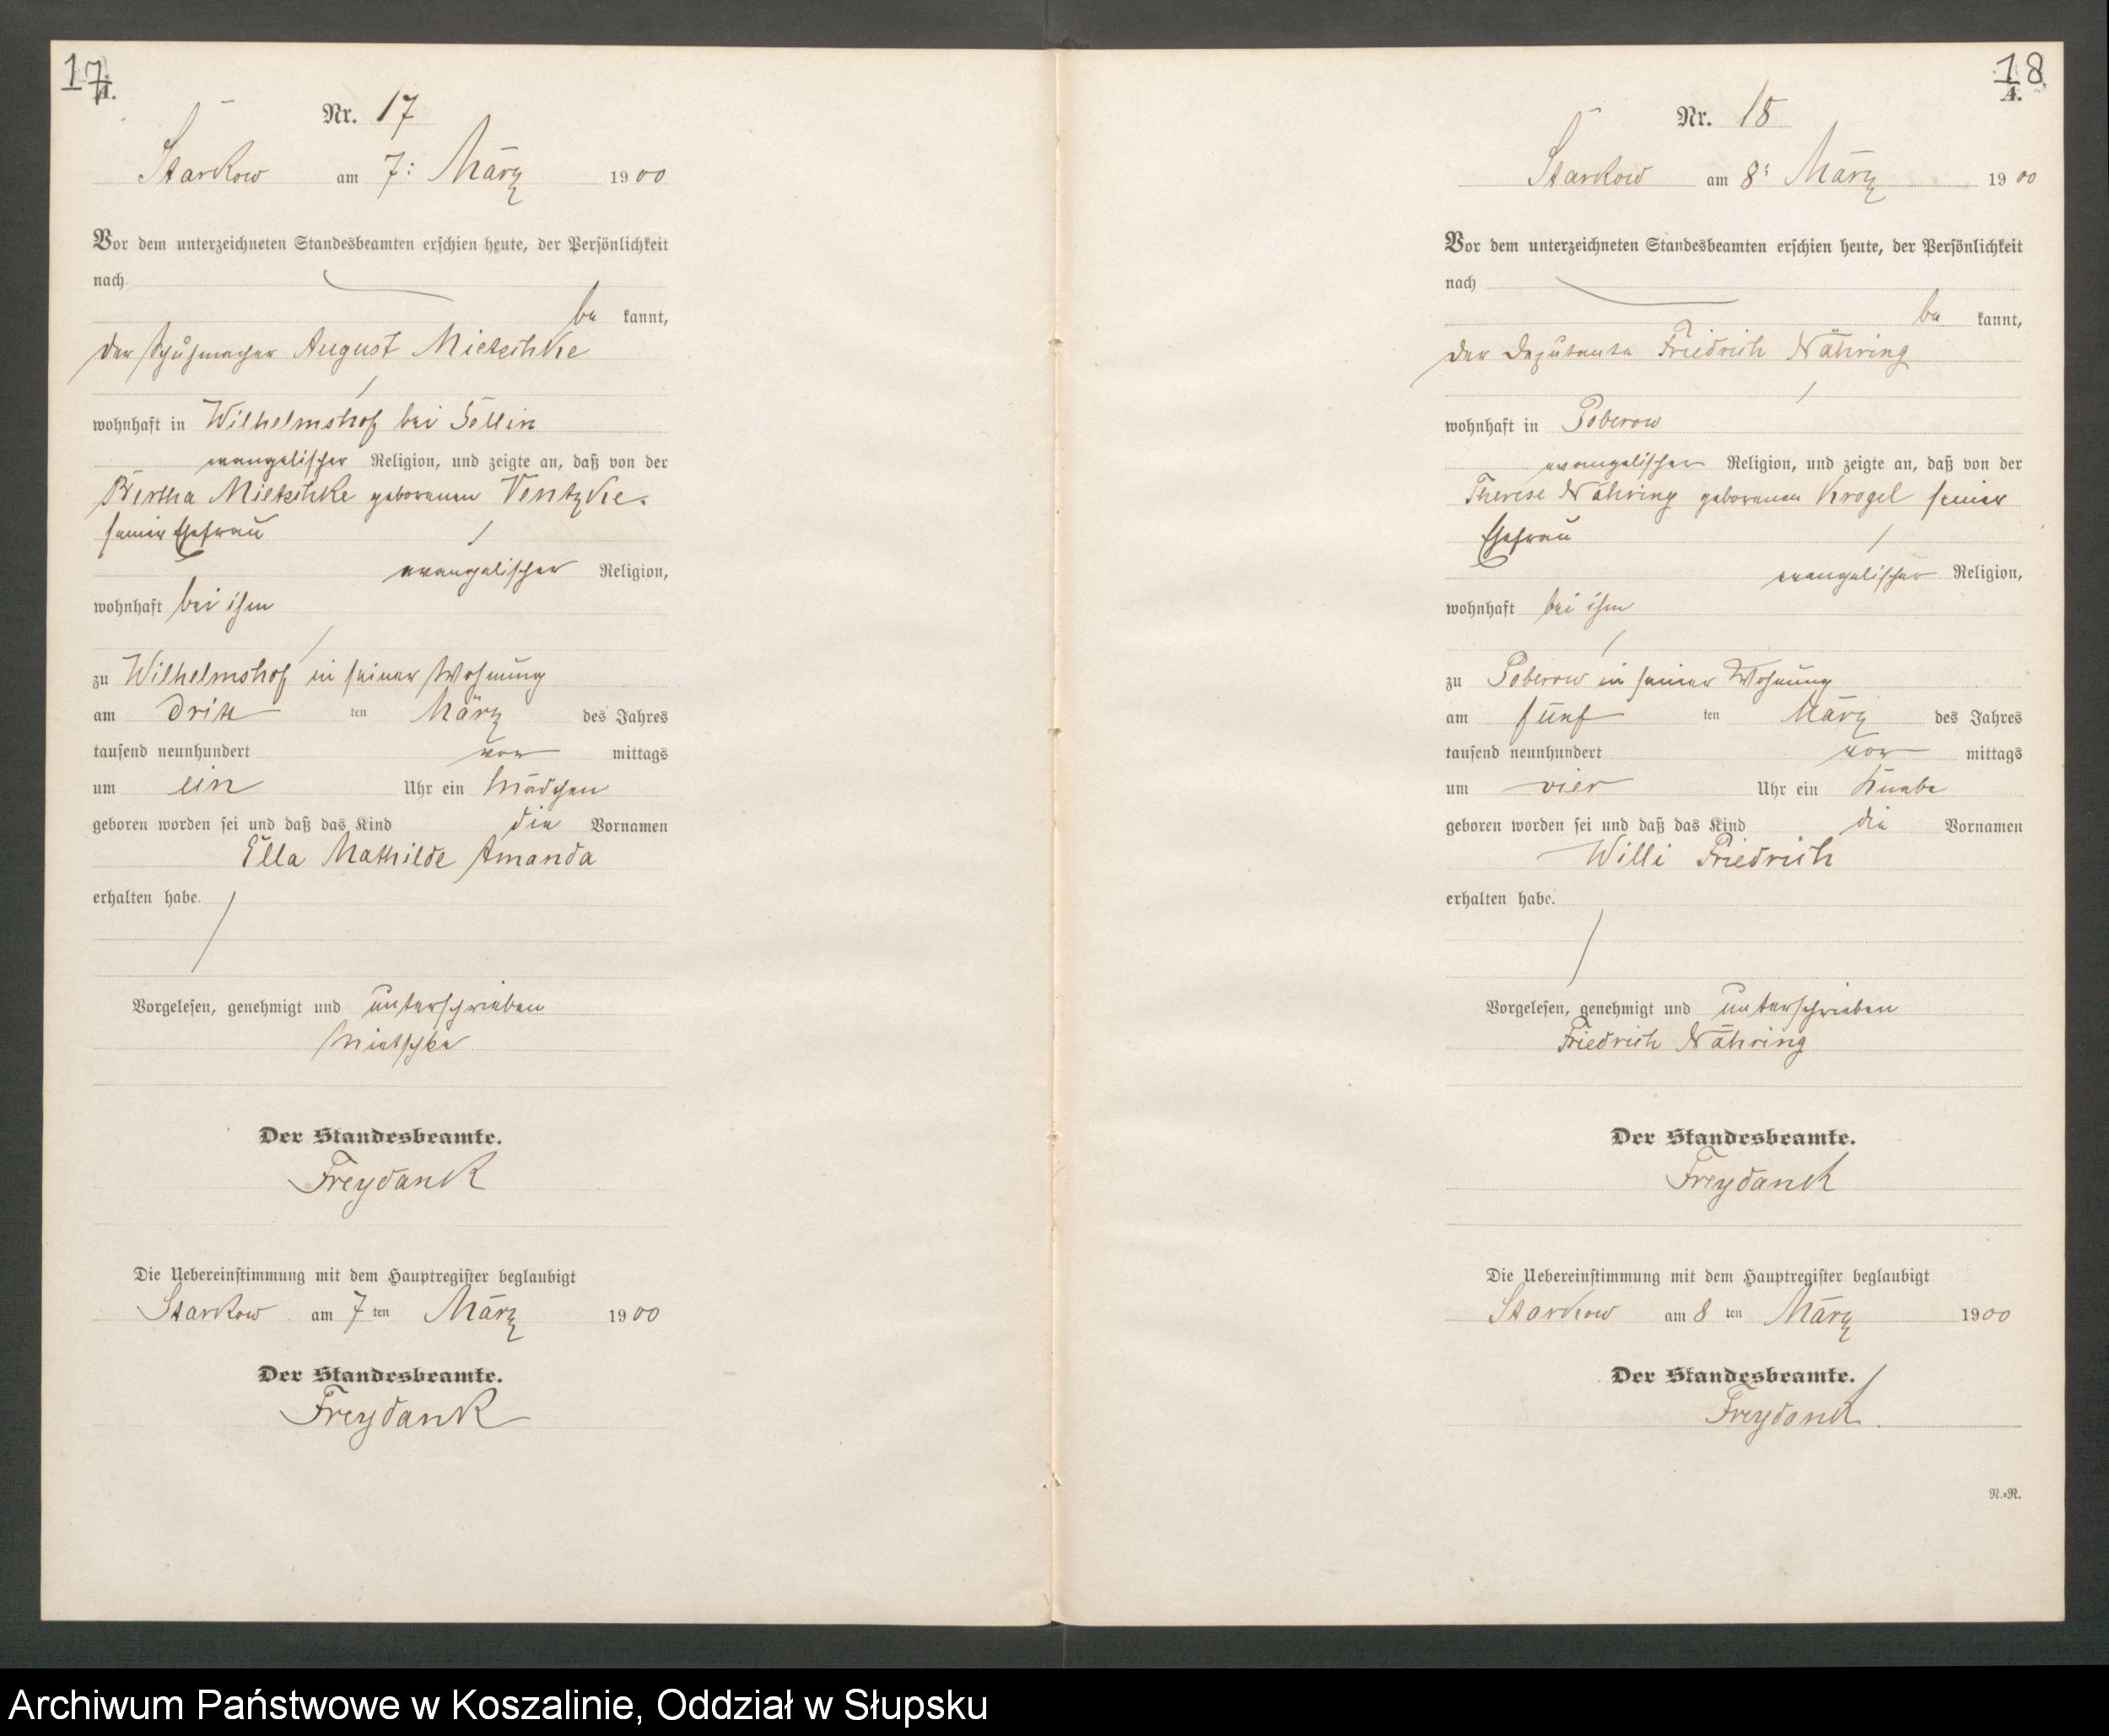 17
A.
Nr. 17
Starkow am 7: März 1900
Vor dem unterzeichneten Standesbeamten erschien heute, der Persönlichkeit
nach
be kannt,
der Schuhmacher August Mietschke
wohnhaft in Wilhelmshof bei Söllin
evangelischer Religion, und zeigte an, daß von der
Bertha Mietschke geborenen Ventzke.
seiner Ehefrau
evangelischer Religion,
wohnhaft bei ihm
zu Wilhelmshof in seiner Wohnung
am dritt ten März des Jahres
tausend neunhundert vor mittags
um ein Uhr ein Mädchen
geboren worden sei und daß das Kind die Vornamen
Ella Mathilde Amanda
erhalten habe.
Vorgelesen, genehmigt und unterschrieben
Mietschke
Der Standesbeamte.
Freydank
Die Uebereinstimmung mit dem Hauptregister beglaubigt
Starkow am 7 ten März 1900
Der Standesbeamte.
Freydank
18
A.
Nr. 18
Starkow am 8: März 1900
Vor dem unterzeichneten Standesbeamten erschien heute, der Persönlichkeit
nach
be kannt,
der Deputante Friedrich Nähring
wohnhaft in Poberow
evangelischer Religion, und zeigte an, daß von der
Therese Nähring geborenen Krogel seiner
Ehefrau
evangelischer Religion,
wohnhaft bei ihm
zu Poberow in seiner Wohnung
am fünf ten März des Jahres
tausend neunhundert vor mittags
um vier Uhr ein Knabe
geboren worden sei und daß das Kind die Vornamen
Willi Friedrich
erhalten habe.
Vorgelesen, genehmigt und unterschrieben
Friedrich Nähring
Der Standesbeamte.
Freydank
Die Uebereinstimmung mit dem Hauptregister beglaubigt
Starkow am 8 ten März 1900
Der Standesbeamte.
Freydank.
N.=R.
Archiwum Państwowe w Koszalinie, Oddział w Słupsku